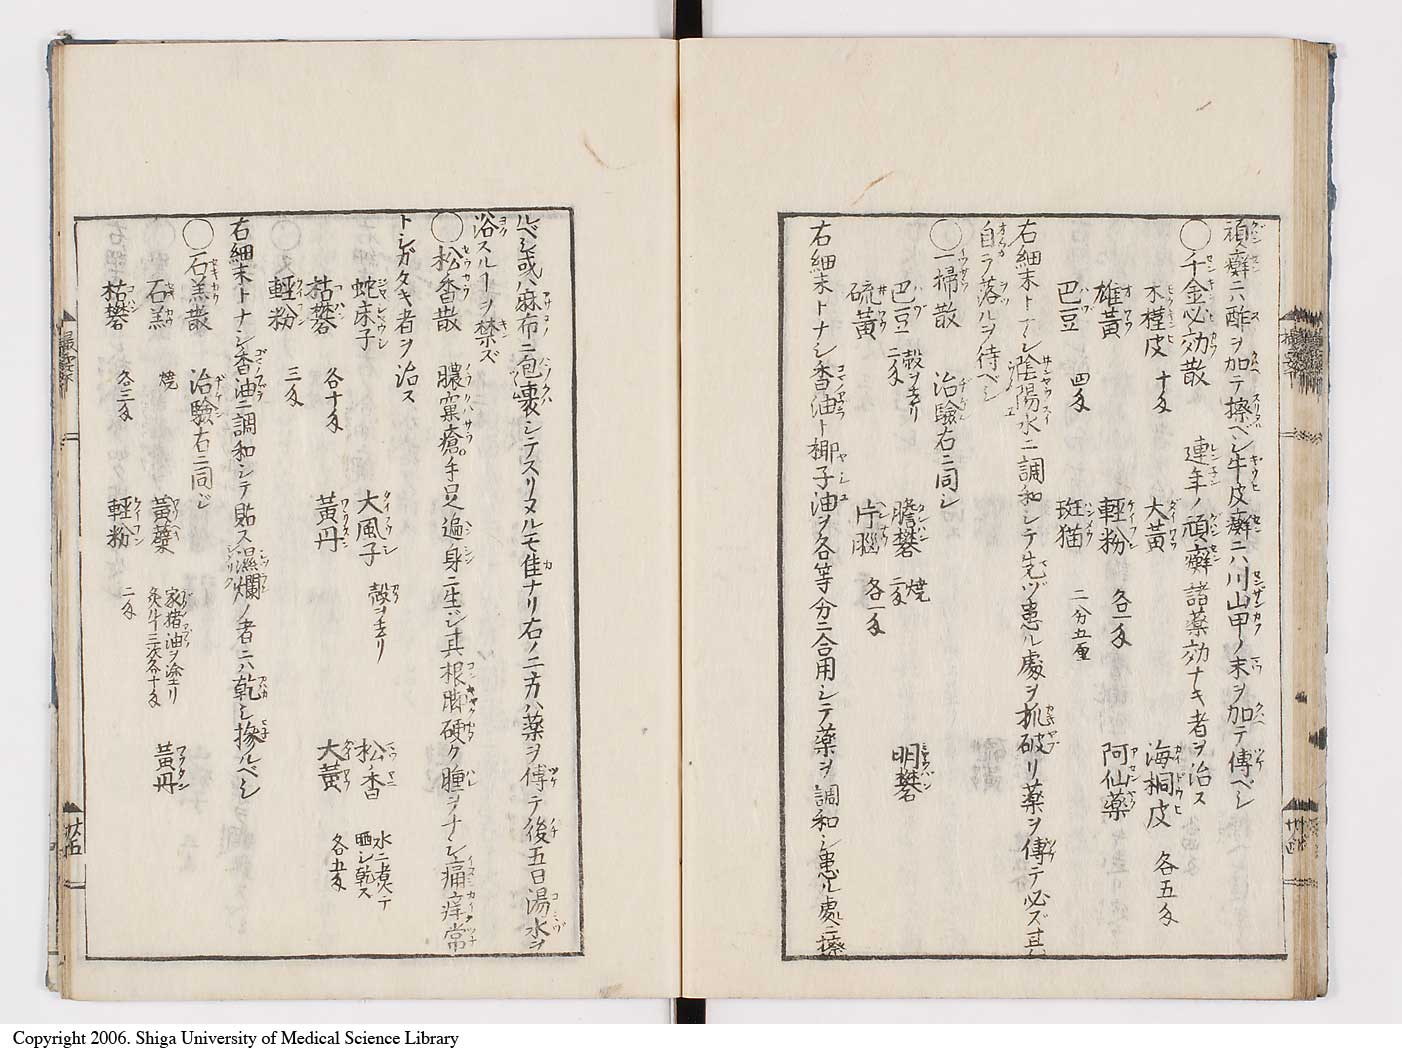 頑癬ニハ醋ヲ加テ擦ベシ牛皮癬ニハ川山甲ノ末ヲ加テ傅ベシ
〇千金必効散 連年ノ頑癬諸薬効ナキ者ヲ治ス
木槿皮 十匁 大黄 海桐皮 各五匁
雄黄 輕粉 各一匁 阿仙薬
巴豆 四匁 斑猫 二分五厘
右細末トナシ陰陽水ニ調和シテ先ヅ患ル處ヲ抓破リ薬ヲ傅テ必ズ其
自ラ落ルヲ待ベシ
〇一掃散 治驗右ニ同シ
巴豆 殻ヲ去リ二匁 膽礬 焼二匁 明礬
硫黄 片腦 各一匁
右細末トナシ香油ト椰子油ヲ各等分ニ合用シテ薬ヲ調和シ患ル處ニ擦
ルベシ或ハ麻布ニ包裹シテスリヌルモ佳ナリ右ノ二方ハ薬ヲ傅テ後五日湯水ヲ
浴スルヿヲ禁ズ
〇松香散 膿窠瘡手足遍身ニ生ジ其根脚硬ク腫ヲナシ痛痒常
トシガタキ者ヲ治ス
蛇床子 大風子 殻ヲ去リ 松香 水ニ煮テ晒シ乾ス
枯礬 各十匁 黄丹 大黄 各五匁
輕粉 三匁
右細末トナシ香油ニ調和シテ貼ス濕爛ノ者ニハ乾シ摻ルベシ
〇石羔散 治驗右ニ同ジ
石羔 焼 黄蘗 家猪油ヲ塗リ炙ルヿ三次各十匁 黄丹
枯礬 各三匁 輕粉 二匁
廿五
Copyright 2006. Shiga University of Medical Science Library